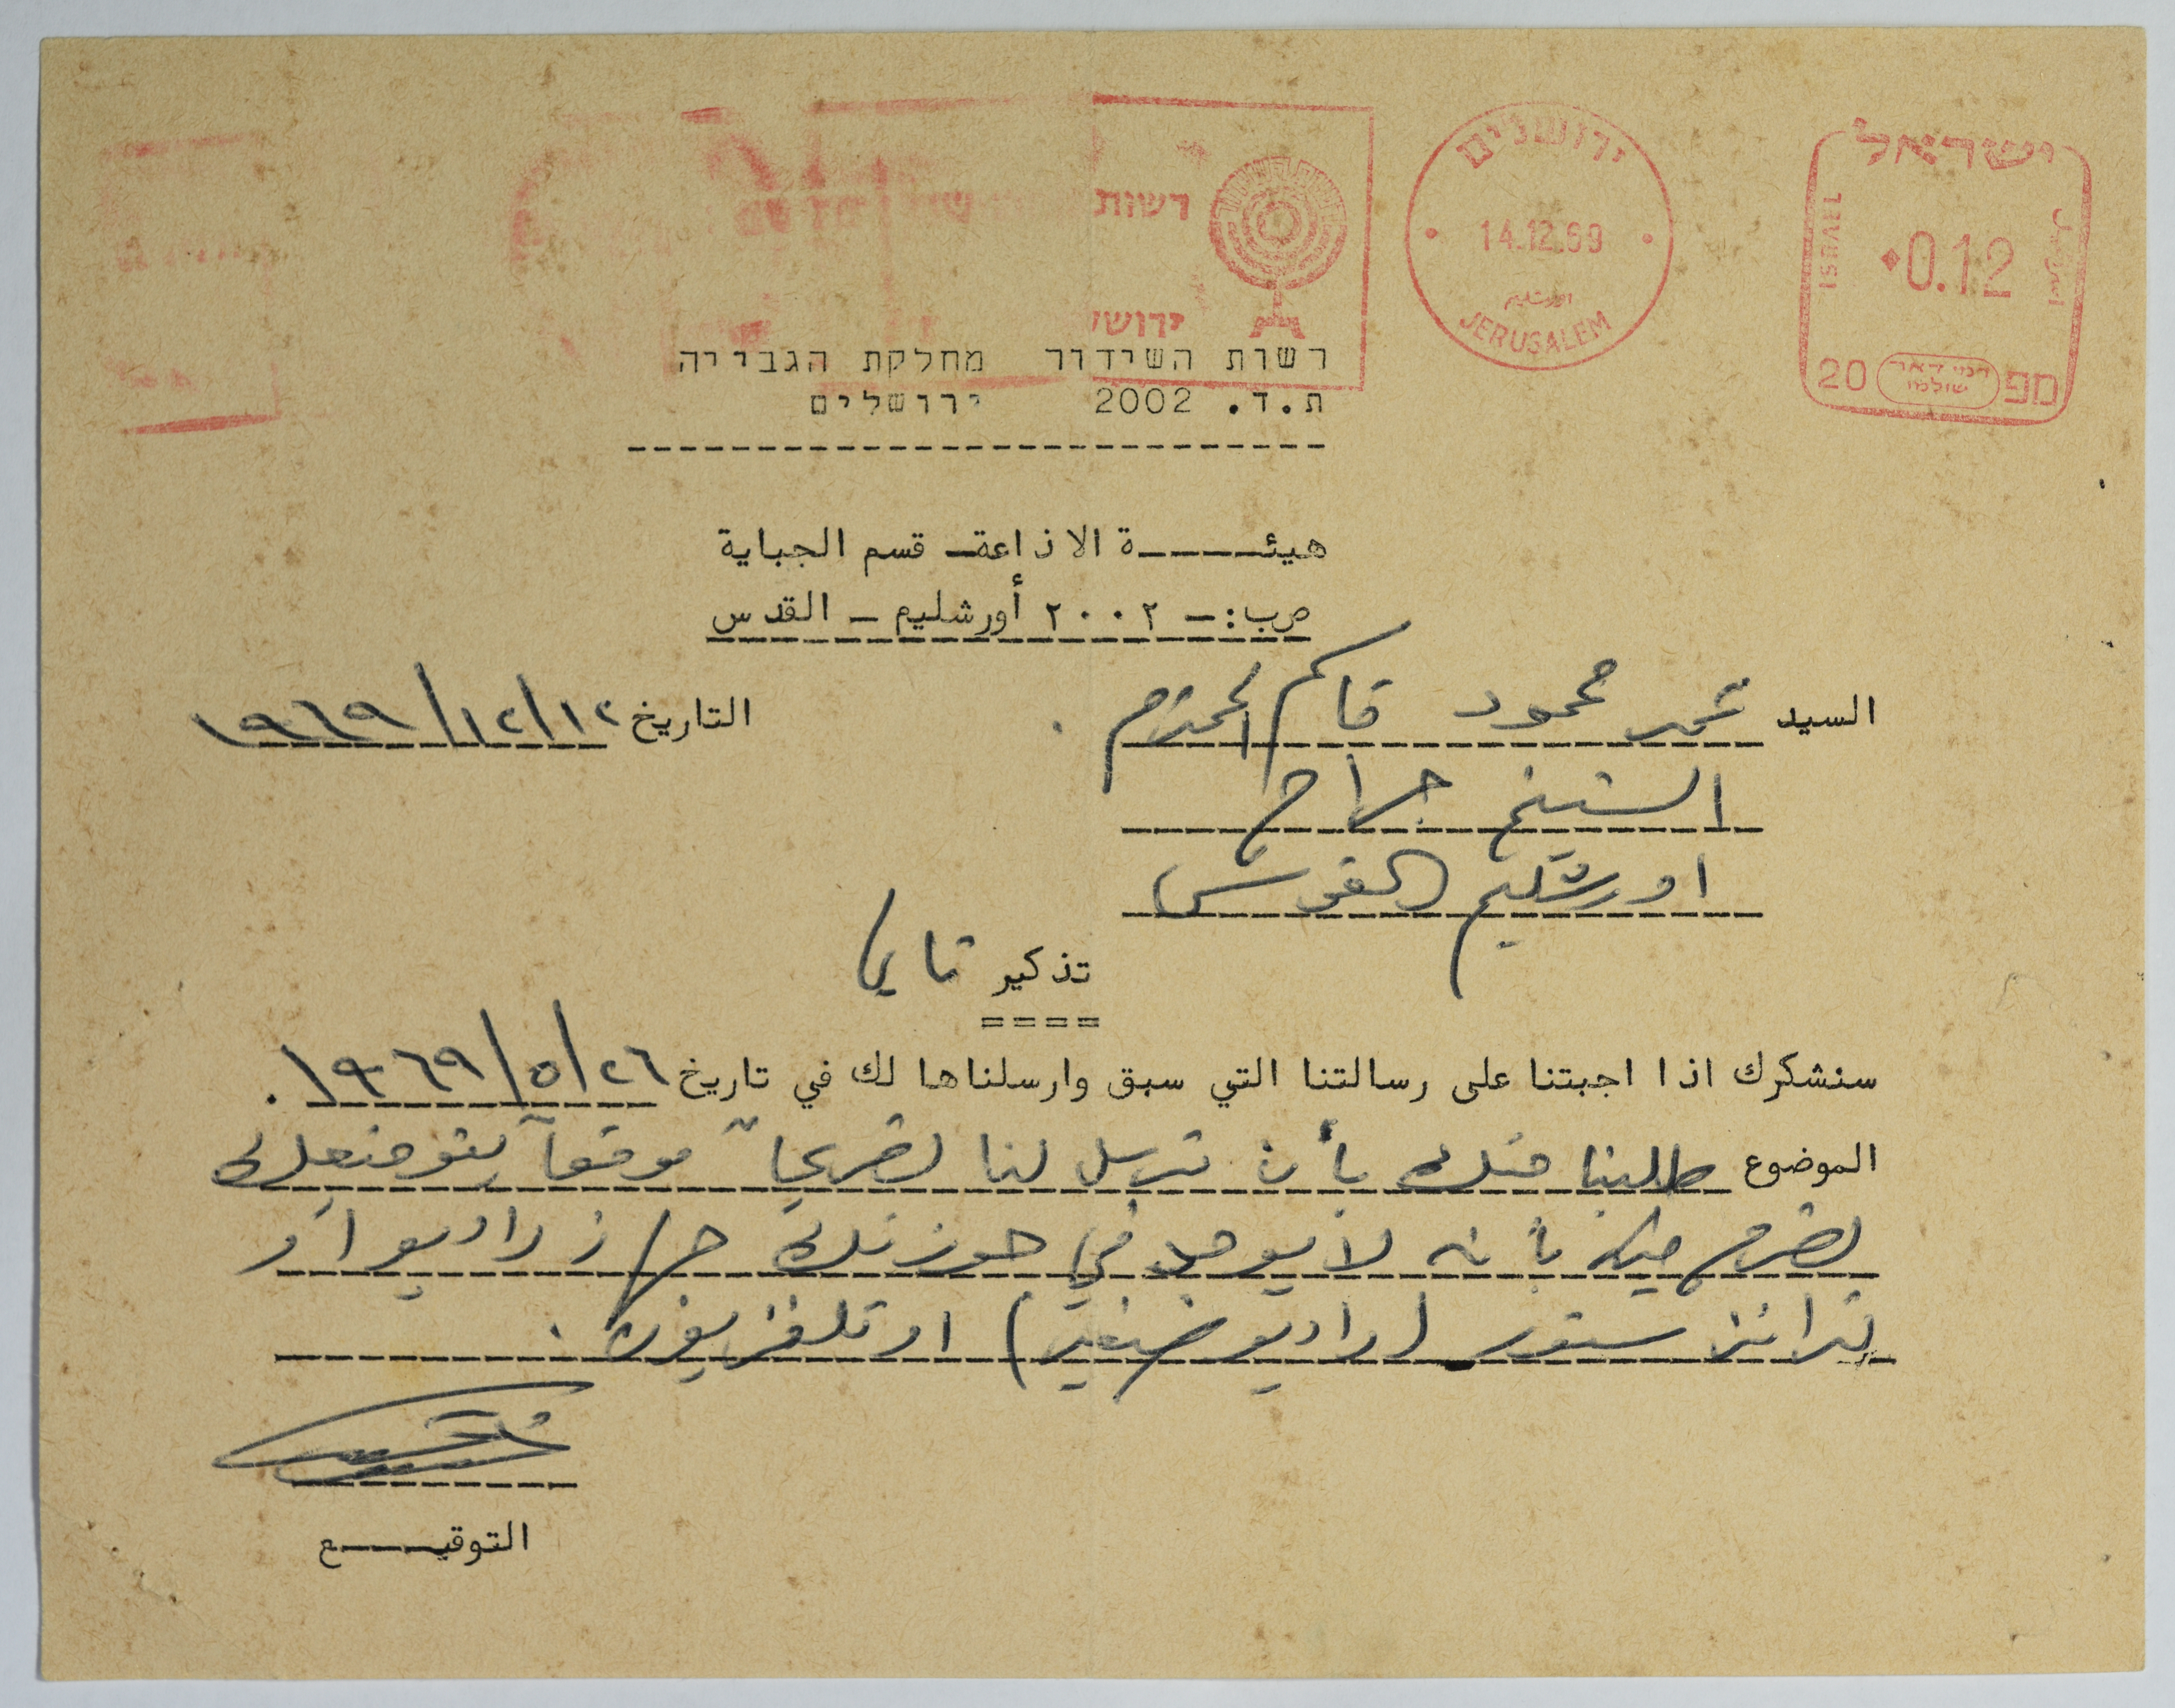 ישראל
ISRAEL
اسرائيل
0.12
דמי דאר שולמו
מפ 20
ירושלים
14.12.69
اورشليم
JERUSALEM
רשות
ירושי
רשות השידור מחלקת הגבייה
ת.ד. 2002 ירושלים
هيئـــــة الاذاعةـ قسم الجباية
ص‌ب:ـ ٢٠٠٢ أورشليم ـ القدس
السيد محمد محمود قاسم المحترم .
التاريخ ١٢/١٢/١٩٦٩
الشيخ جراح
اورشليم القدس
تذكير ثاني
سنشكرك اذا اجبتنا على رسالتنا التي سبق وارسلناها لك في تاريخ ٢٦/٥/١٩٦٩ .
الموضوع طلبنا منك بأن ترسل لنا تصريحاً موقعاً بتوقيعك
تصرح فيه بأنه لا يوجد في حوزتك جهاز راديو أو
ترانزستور (راديو صغير) او تلفزيون .
التوقيـــــع